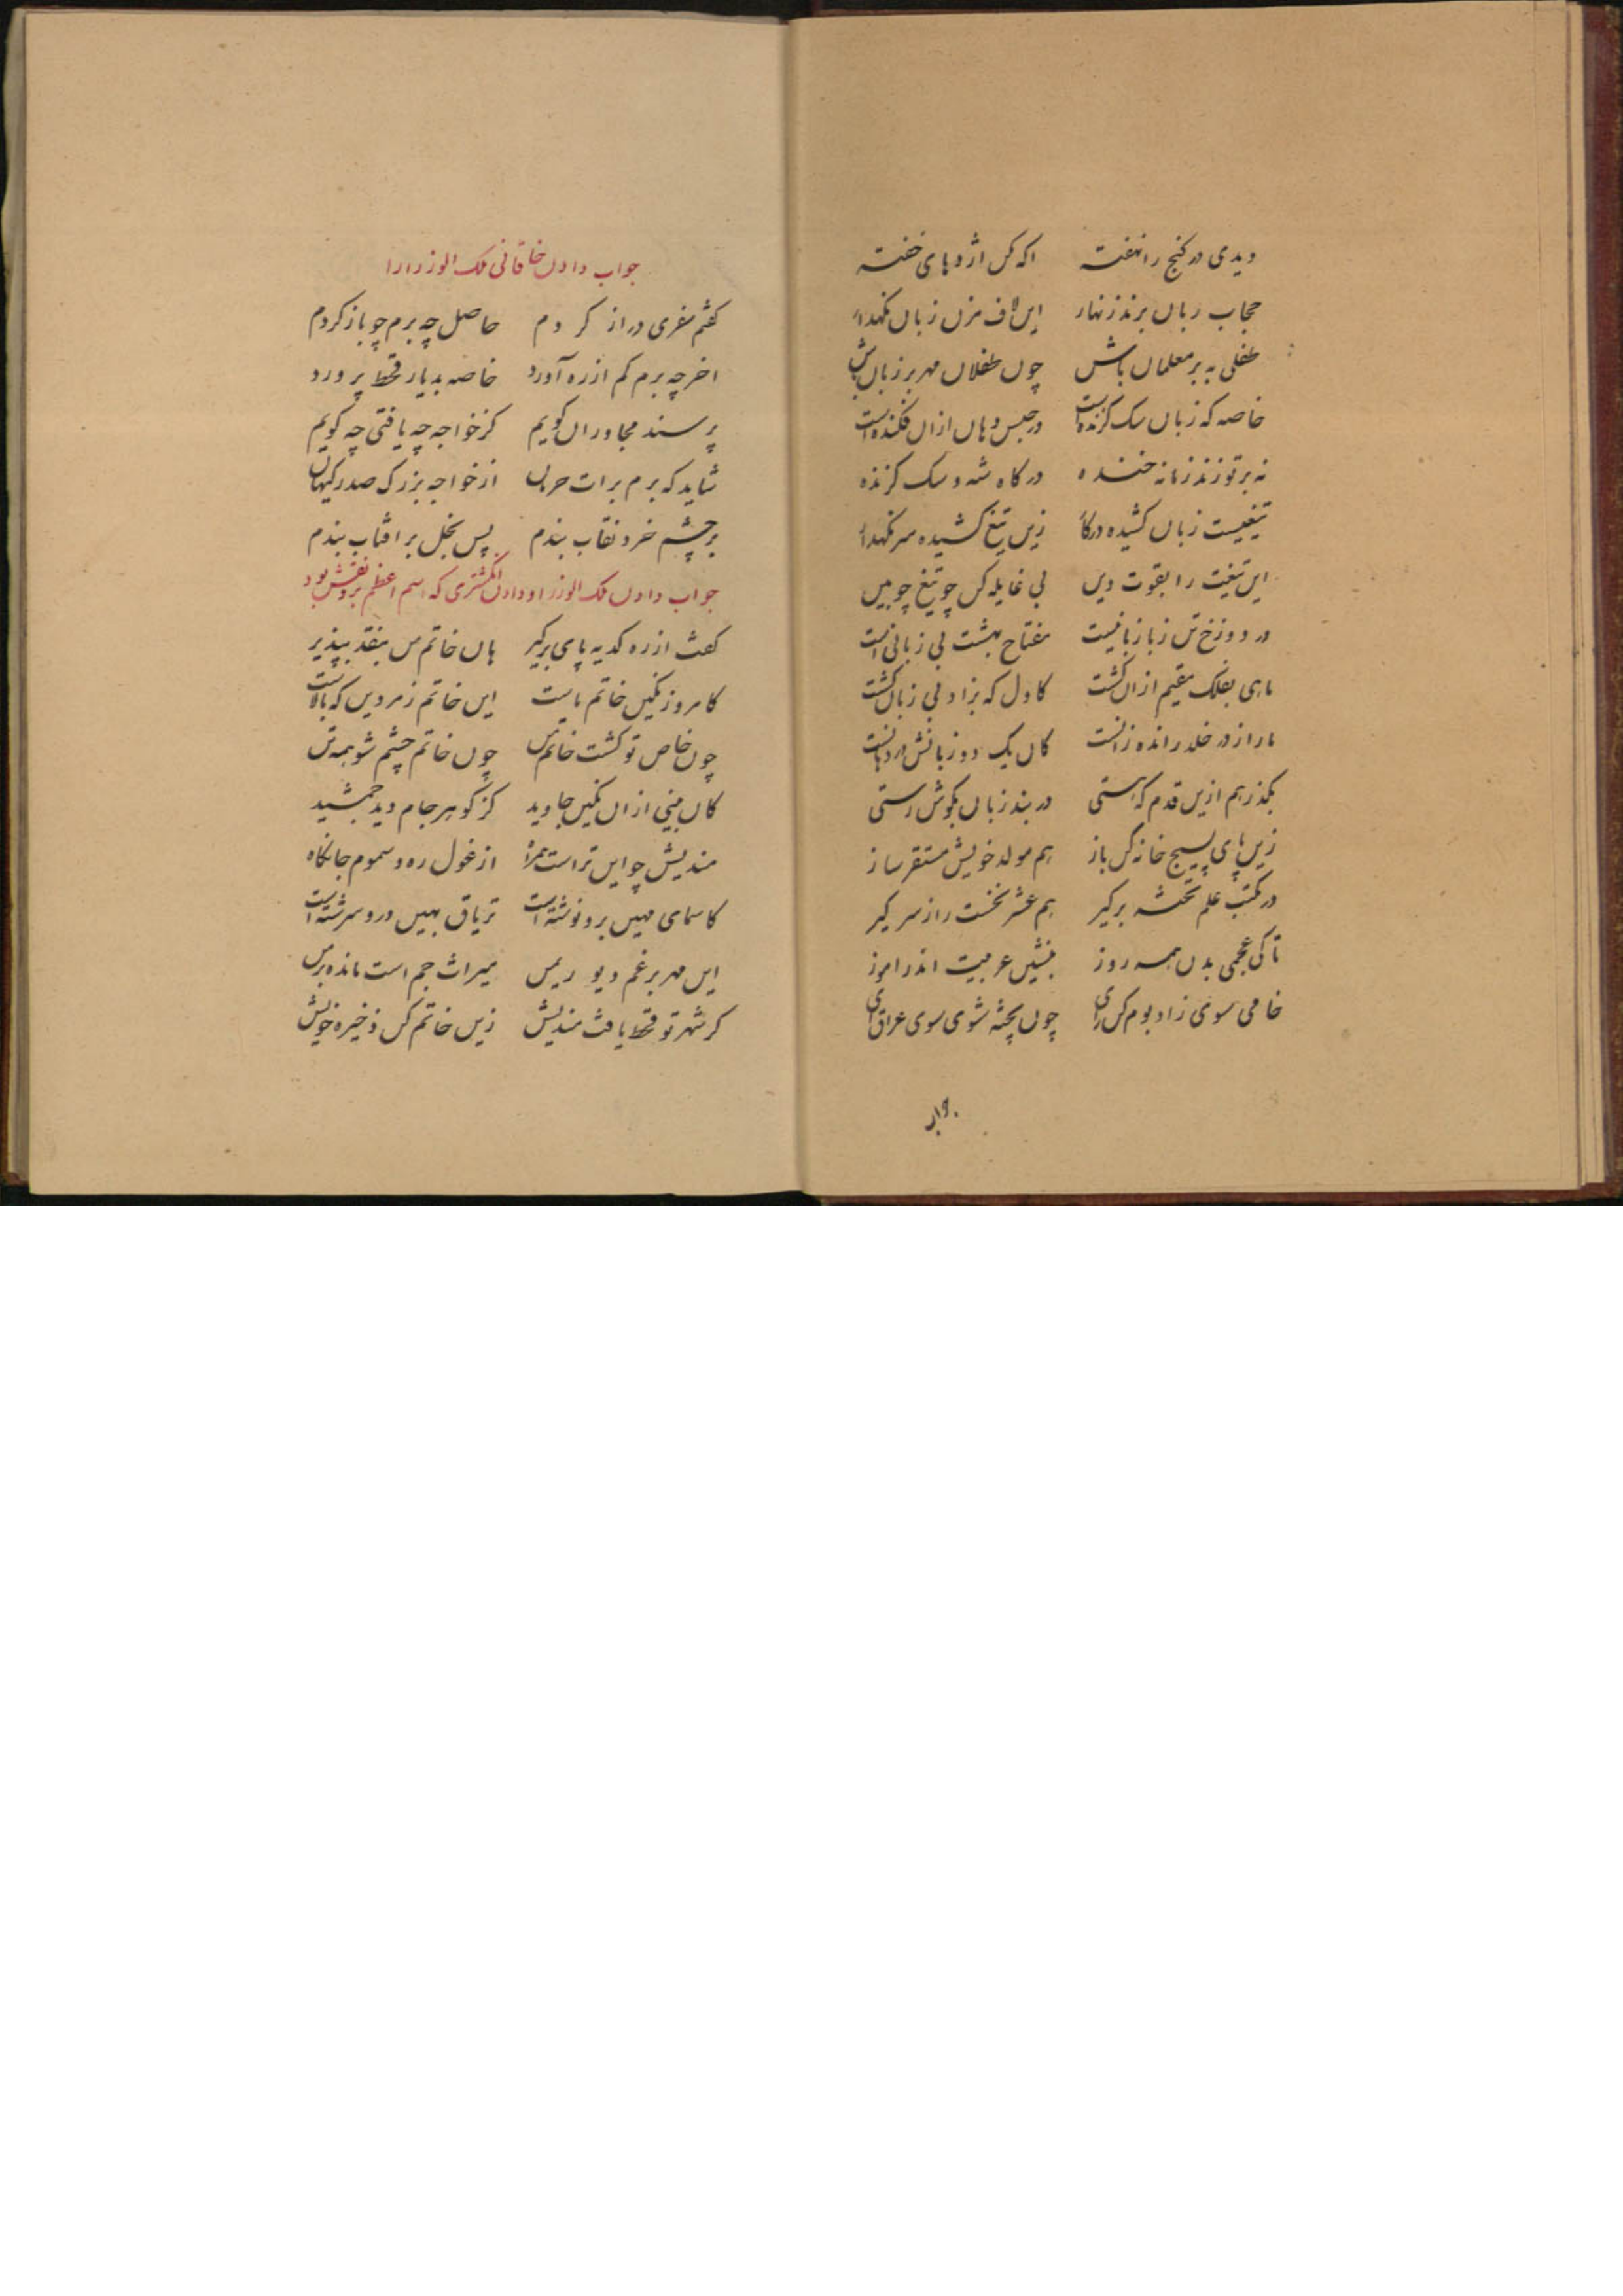 دیدی در گنج را نهفته اکه کن اژدهای خفته
حجاب زبان برند زنهار این لاف مزن زبان نکهدار
طفلی به بر معلمان باش چون طفلان مهر بر زبان باش
خاصه که زبان سک کزنده است در حبس دهان ازان فکنده است
نه بر تو زند زمانه خنده درکاه شه و سک کزنده
تیغیست زبان کشیده درکار زین تیغ کشیده سر نکهدار
این تیغت را بقوت دین بی غایله کن چو تیغ چوبین
در دوزخ تن زبا زبانیست مفتاح بهشت بی زبانی است
ماهی بفلک مقیم ازان کشت کاول که بزاد بی زبان کشت
مار از در خلد رانده زانست کان یک دو زبانش در دهانست
بکذر هم ازین قدم که هستی در بند زبان بکوش رستی
زین پای بسیج خانه کن باز هم مولد خویش مستقر ساز
در مکتب علم تخته برکیر هم عشر نخست را ز سر کیر
تا کی عجمی بدن همه روز بنشین عربیت اندر اموز
خامی سوی زاد بوم کن رای چون پخته شوی سوی عراق آی
جواب دادن خاقانی ملک الوزرا را
کفتم سفری دراز کردم حاصل چه برم چو باز کردم
اخر چه برم کم از ره آورد خاصه بدیار قحط پرورد
پرسند مجاوران کویم کز خواجه چه یافتی چه کویم
شاید که برم برات حرمان از خواجه بزرک صدر کیهان
بر چشم خرد نقاب بندم پس بخل بر افتاب بندم
جواب دادن ملک الوزرا و دادن انکشتری که اسم اعظم برو نقش بود
کفت از ره کدیه پای برکیر هان خاتم من بنقد بپذیر
کامروز نکین خاتم ماست این خاتم زمردین که بالاست
چون خاص تو کشت خاتم من چون خاتم چشم شو همه تن
کان بینی ازان نکین جاوید کز کوهر جام دید جمشید
مندیش چو این تراست همراه از غول ره و سموم جانکاه
کاسمای مهین برو نوشته است تریاق بهین درو سرشته است
این مهر برغم دیو ریمن میراث جم است مانده بر من
کر شهر تو قحط یافت مندیش زین خاتم کن ذخیره خویش